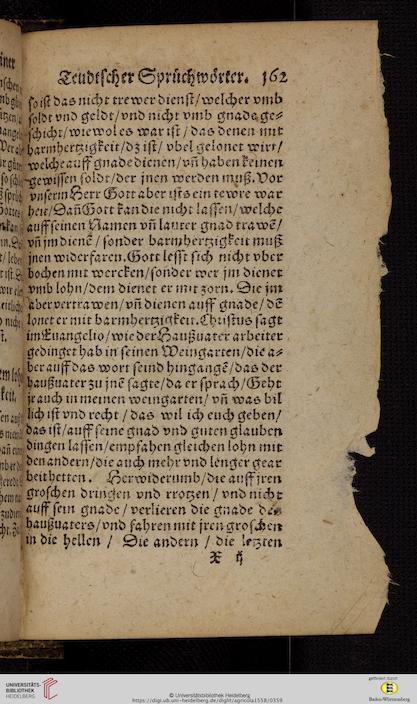 Teudtscher Sprüchwörter. 162
so ist das nicht trewer dienst/ welcher vmb
soldt vnd geldt/ vnd nicht vmb gnade ge-
schicht/ wie wol es war ist/ das denen mit
barmhertzigkeit/ dz ist/ vbel gelonet wirt/
welche auff gnade dienen/ vñ haben keinen
gewissen soldt/ der jnen werden muß. Vor
vnserm Herr Gott aber ists ein tewre war
heit/ Dañ Gott kan die nicht lassen/ welche
auff seinen Namen vñ lauter gnad trawẽ/
vñ jm dienẽ/ sonder barmhertzigkeit muß
jnen widerfaren. Gott lesst sich nicht vber
bochen mit wercken/ sonder wer jm dienet
vmb lohn/ dem dienet er mit zorn. Die jm
aber vertrawen/ vñ dienen auff gnade/ dẽ
lonet er mit barmhertzigkeit. Christus sagt
im Euangelio/ wie der Haußuater arbeiter
gedinget hab in seinen Weingarten/ die a-
ber auff das wort seind hingangẽ/ das der
haußuater zu jnẽ sagte/ da er sprach/ Geht
jr auch in meinen weingarten/ vñ was bil
lich ist vnd recht/ das wil ich euch geben/
das ist/ auff seine gnad vnd guten glauben
dingen lassen/ empfahen gleichen lohn mit
den andern/ die auch mehr vnd lenger gear
beit hetten. Herwiderumb/ die auff jren
groschen dringen vnd trotzen/ vnd nicht
auff sein gnade/ verlieren die gnade des
haußuaters/ vnd fahren mit jren groschen
in die hellen/ Die andern/ die letzten
X ij
UNIVERSITÄTS-
BIBLIOTHEK
HEIDELBERG
© Universitätsbibliothek Heidelberg
https://digi.ub.uni-heidelberg.de/diglit/agricola1558/0359
gefördert durch
Baden-Württemberg